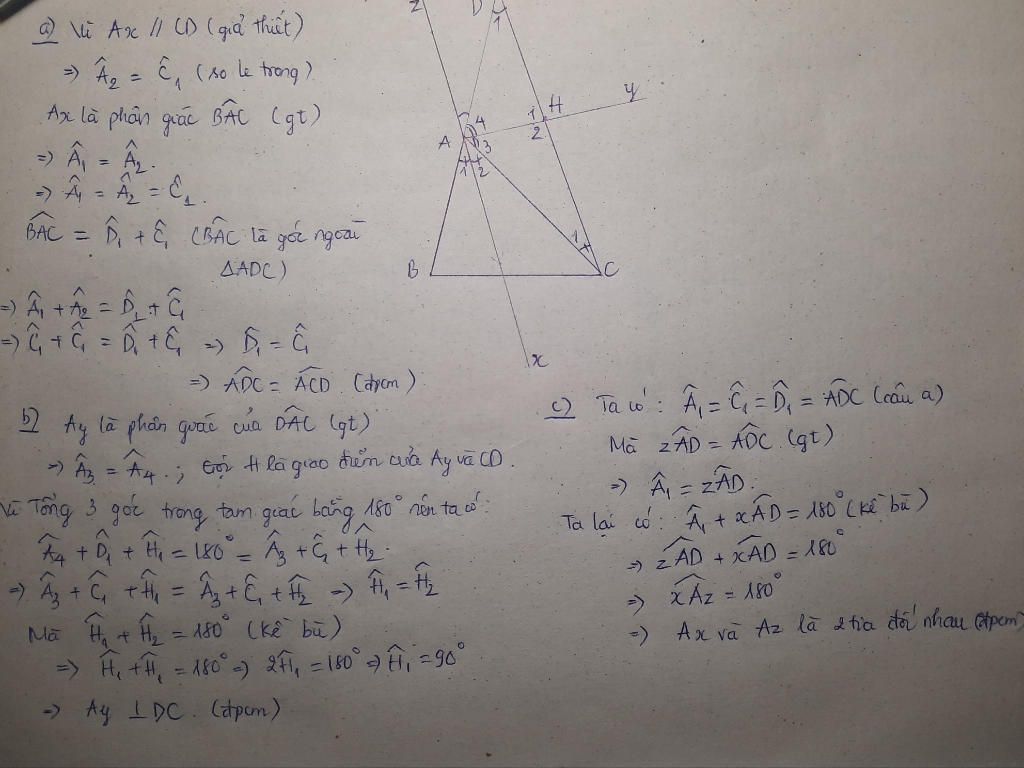 a) Vì Ax // CD (giả thiết)
=> Â₂ = Ĉ₁ (so le trong)
Ax là phân giác BÂC (gt)
=> Â₁ = Â₂.
=> Â₁ = Â₂ = Ĉ₁.
BÂC = D̂₁ + Ĉ₁ (BÂC là góc ngoài
ΔADC)
=> Â₁ + Â₂ = D̂₁ + Ĉ₁
=> Ĉ₁ + Ĉ₁ = D̂₁ + Ĉ₁ => D̂₁ = Ĉ₁
=> ADC = ACD (đpcm)
b) Ay là phân giác của DÂC (gt)
=> Â₃ = Â₄.; Gọi H là giao điểm của Ay và CD.
Vì Tổng 3 góc trong tam giác bằng 180° nên ta có:
Â₄ + D̂₁ + Ĥ₁ = 180° = Â₃ + Ĉ₁ + Ĥ₂.
=> Â₃ + Ĉ₁ + Ĥ₁ = Â₃ + Ĉ₁ + Ĥ₂ => Ĥ₁ = Ĥ₂
Mà Ĥ₁ + Ĥ₂ = 180° (kề bù)
=> Ĥ₁ + Ĥ₁ = 180° => 2Ĥ₁ = 180° => Ĥ₁ = 90°
=> Ay ⊥ DC. (đpcm)
z D
1
4 1 H y
A 3 2
1 2
1
B C
x
c) Ta có: Â₁ = Ĉ₁ = D̂₁ = ADC (câu a)
Mà zÂD = ADC (gt)
=> Â₁ = zÂD.
Ta lại có: Â₁ + xÂD = 180° (kề bù)
=> zÂD + xÂD = 180°
=> xÂz = 180°
=> Ax và Az là 2 tia đối nhau (đpcm)